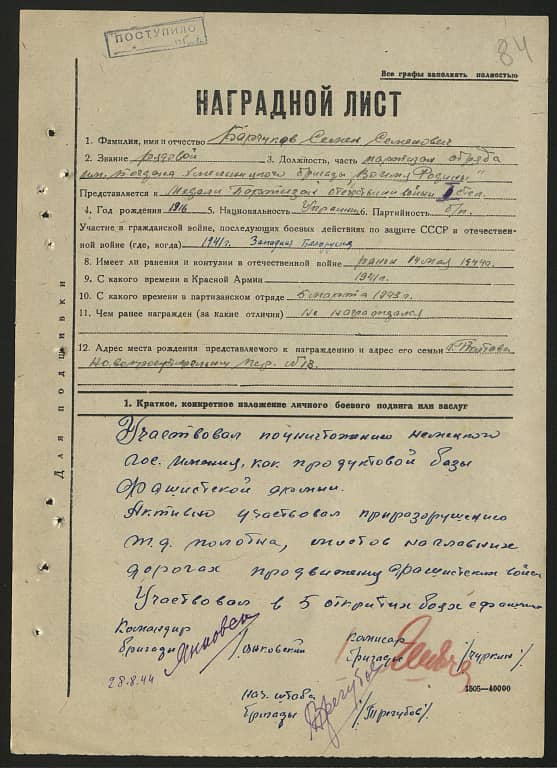 ПОСТУПИЛО
84
Все графы заполнять полностью
НАГРАДНОЙ ЛИСТ
1. Фамилия, имя и отчество Семен Семенович
2. Звание рядовой 3. Должность, часть партизан отряда
им. Богдана Хмельницкого бригады "Во имя Родины"
Представляется к медали Партизан отечествен войны I степ.
4. Год рождения 1916 5. Национальность Украинец 6. Партийность б/п.
Участие в гражданской войне, последующих боевых действиях по защите СССР и отечествен-
ной войне (где, когда) 1941г. Западная Белоруссия
8. Имеет ли ранения и контузии в отечественной войне ранен 14 мая 1944г.
9. С какого времени в Красной Армии 1941г.
10. С какого времени в партизанском отряде 6 марта 1943г.
11. Чем ранее награжден (за какие отличия) Не награждался
12. Адрес места рождения представляемого к награждению и адрес его семьи г. Полтава
№ 13.
Для подшивки
1. Краткое, конкретное изложение личного боевого подвига или заслуг
Участвовал по уничтожению немецкого
гос. имения, как продуктовой базы
фрашистской армии.
Активно участвовал при разрушению
ж.д. полотна, мостов на главних
дорогах продвижения фрашистских войск
Участвовал в 5 открытих боях с
Командир
бригады /Яньковский
28.8.44
Комисар
бригады /Чуркин/
4505—40000
нач. штаба
бригады /Трегубов/